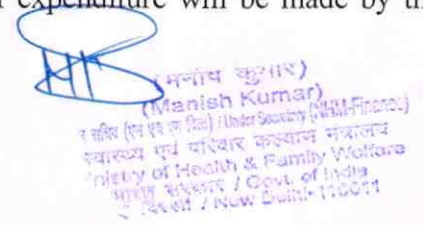 expenditure will be made by th
(मनोष कुमार)
(Manish Kumar)
(एन एच एम वित्त) / Under Secretary (NHM-Finance)
स्वास्थ्य एवं परिवार कल्याण मंत्रालय
nistry of Health & Family Welfare
भारत सरकार / Govt. of India
दिल्ली / New Delhi-110011